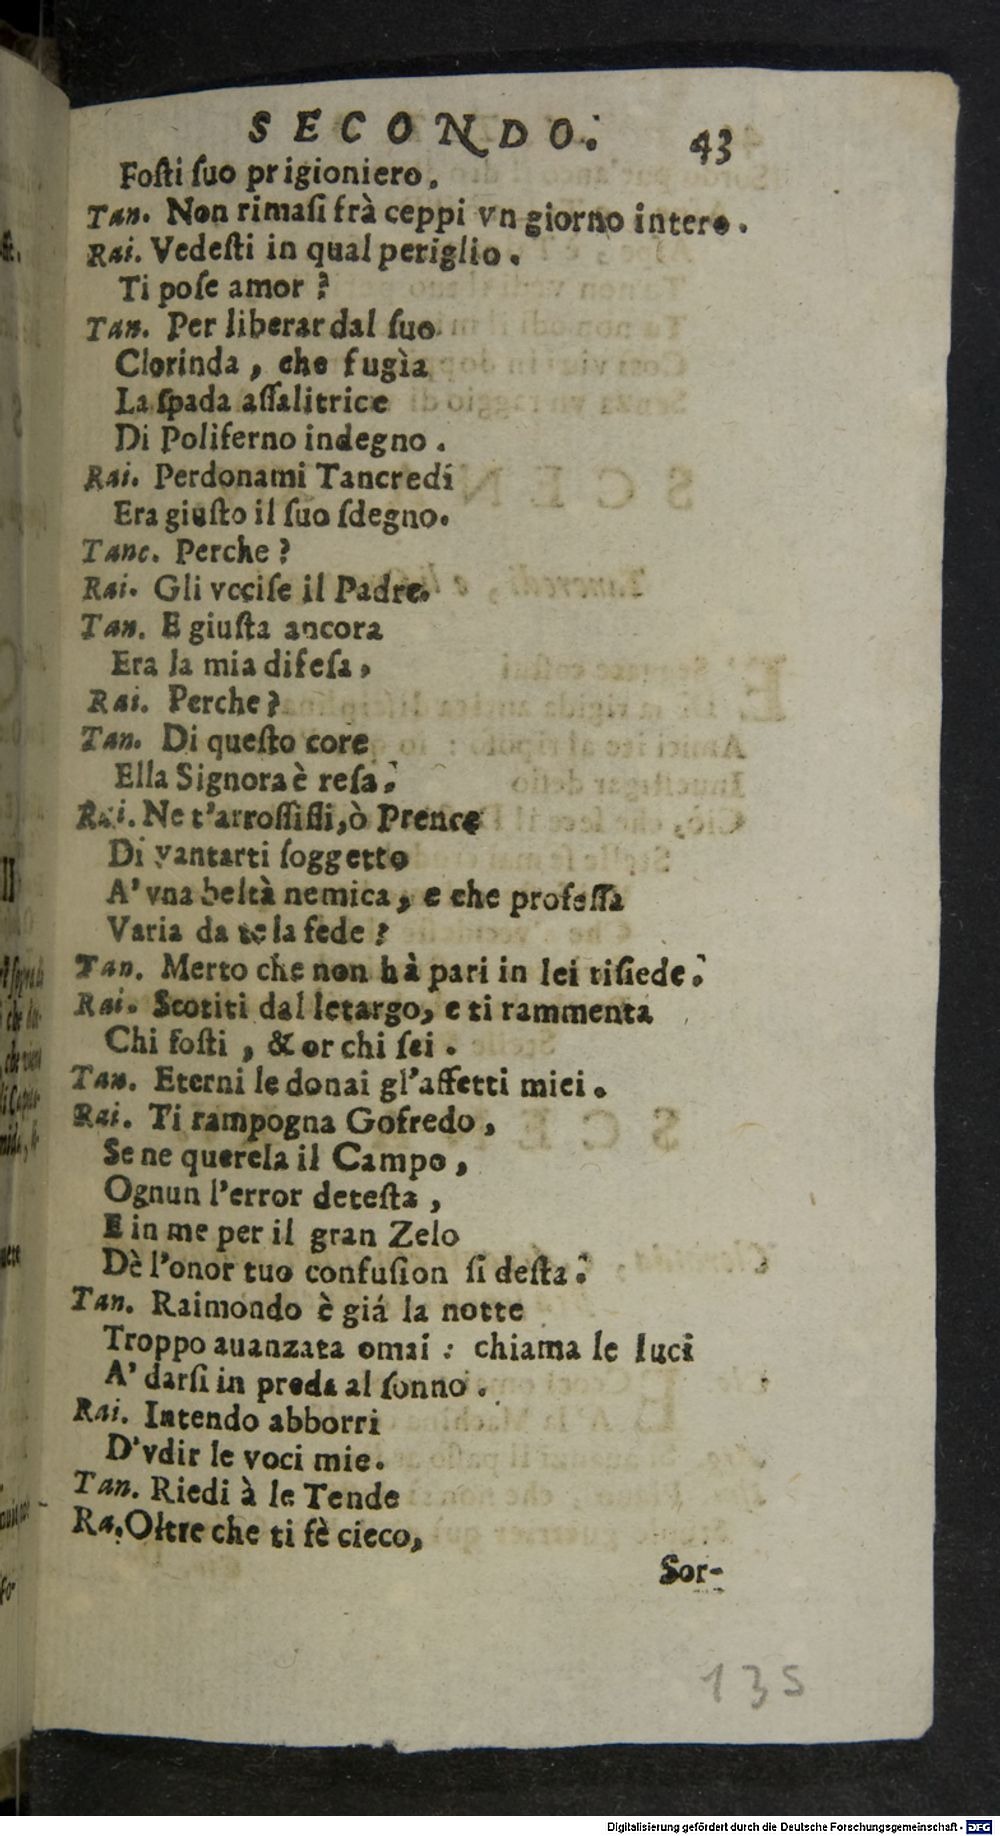 SECONDO. 43
Fosti ſuo prigioniero.
Tan. Non rimaſi frà ceppi vn giorno intero.
Rai. Vedeſti in qual periglio.
Ti poſe amor?
Tan. Per liberar dal ſuo
Clorinda, che fugìa
La ſpada aſſalitrice
Di Poliferno indegno.
Rai. Perdonami Tancredi
Era giuſto il ſuo ſdegno.
Tanc. Perche?
Rai. Gli vcciſe il Padre.
Tan. E giuſta ancora
Era la mia difeſa,
Rai. Perche?
Tan. Di queſto core
Ella Signora è reſa.
Rai. Ne t'arroſſiſſi, ò Prence
Di vantarti ſoggetto
A' vna beltà nemica, e che profeſſa
Varia da te la fede?
Tan. Merto che non hà pari in lei riſiede.
Rai. Scotiti dal letargo, e ti rammenta
Chi foſti, & or chi ſei.
Tan. Eterni le donai gl'affetti miei.
Rai. Ti rampogna Gofredo,
Se ne querela il Campo,
Ognun l'error deteſta,
E in me per il gran Zelo
Dè l'onor tuo confuſion ſi deſta.
Tan. Raimondo è giá la notte
Troppo auanzata omai: chiama le luci
A' darſi in preda al ſonno.
Rai. Intendo abborri
D'vdir le voci mie.
Tan. Riedi à le Tende
Ra. Oltre che ti fè cieco,
Sor-
135
Digitalisierung gefördert durch die Deutsche Forschungsgemeinschaft - DFG